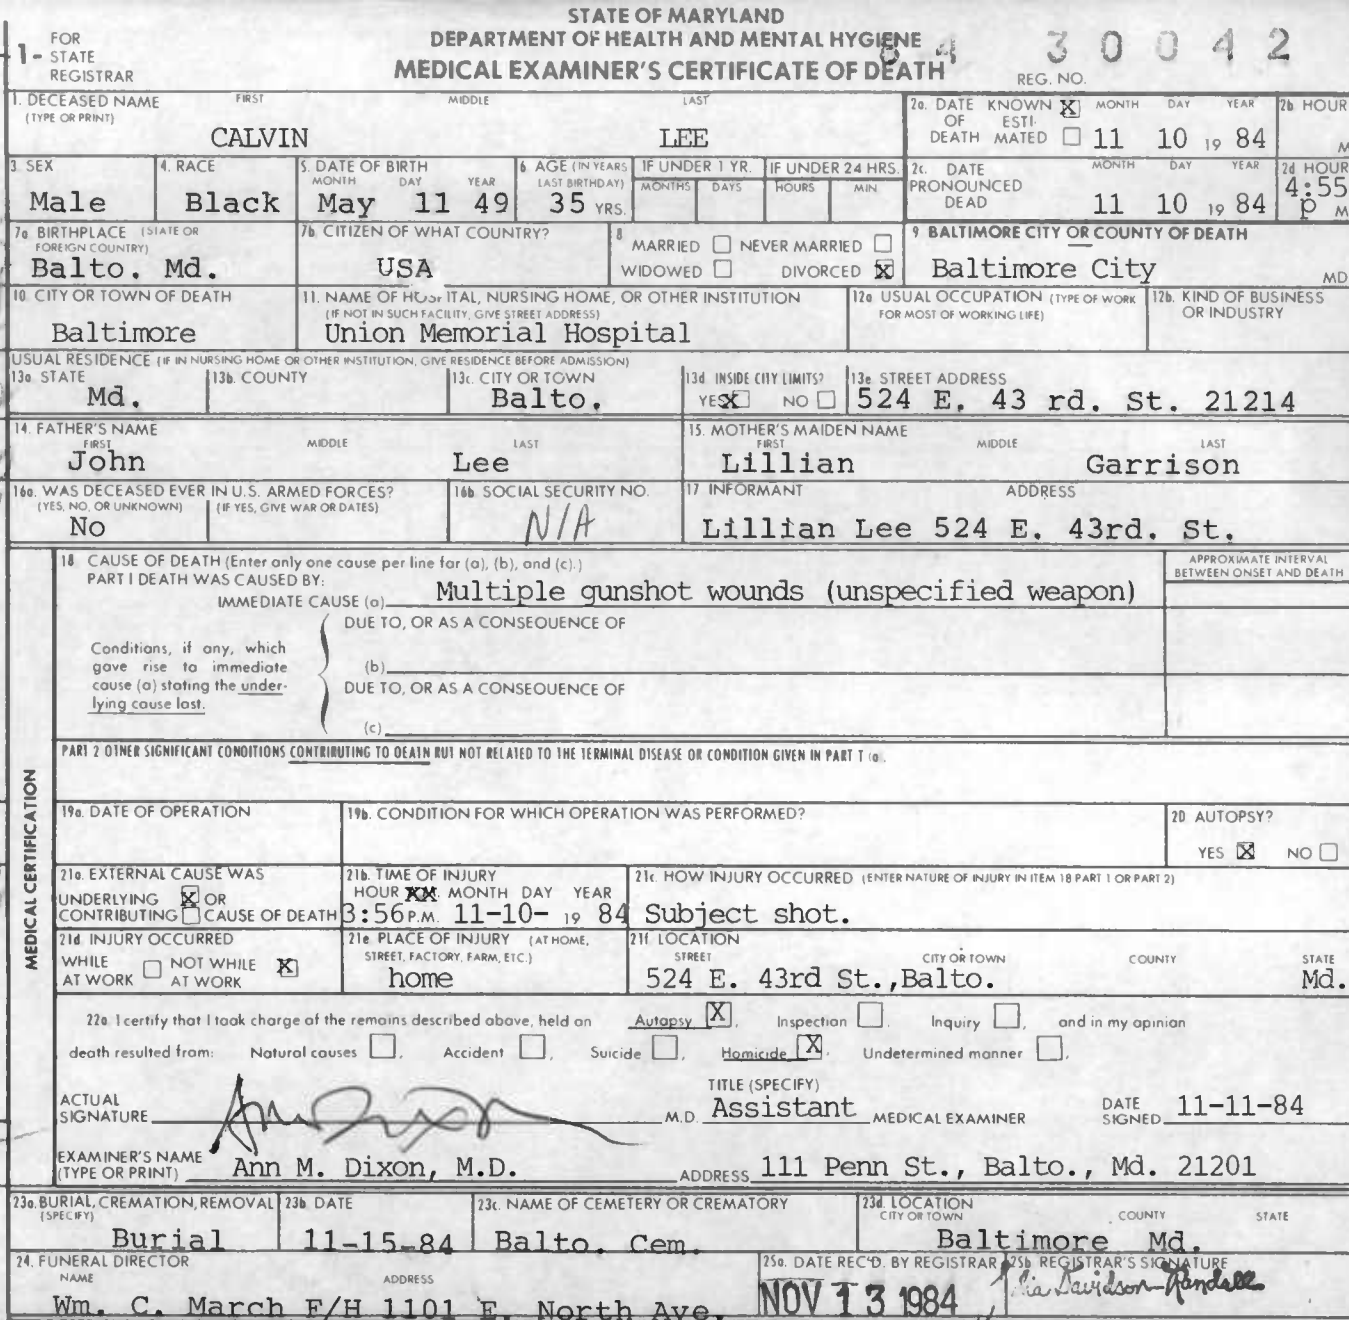 STATE OF MARYLAND
DEPARTMENT OF HEALTH AND MENTAL HYGIENE
MEDICAL EXAMINER'S CERTIFICATE OF DEATH
1- FOR STATE REGISTRAR
84 30042
REG. NO.
1. DECEASED NAME (TYPE OR PRINT) FIRST MIDDLE LAST
CALVIN LEE
2a. DATE OF DEATH KNOWN X ESTIMATED MONTH DAY YEAR
11 10 19 84
2b. HOUR M
3 SEX
Male
4. RACE
Black
5. DATE OF BIRTH MONTH DAY YEAR
May 11 49
6 AGE (IN YEARS LAST BIRTHDAY)
35 YRS.
IF UNDER 1 YR. MONTHS DAYS
IF UNDER 24 HRS. HOURS MIN
2c. DATE PRONOUNCED DEAD MONTH DAY YEAR
11 10 19 84
2d HOUR
4:55 p M
7a BIRTHPLACE (STATE OR FOREIGN COUNTRY)
Balto. Md.
7b. CITIZEN OF WHAT COUNTRY?
USA
8 MARRIED NEVER MARRIED
WIDOWED DIVORCED X
9 BALTIMORE CITY OR COUNTY OF DEATH
Baltimore City MD
10 CITY OR TOWN OF DEATH
Baltimore
11. NAME OF HOSPITAL, NURSING HOME, OR OTHER INSTITUTION
(IF NOT IN SUCH FACILITY, GIVE STREET ADDRESS)
Union Memorial Hospital
12a USUAL OCCUPATION (TYPE OF WORK FOR MOST OF WORKING LIFE)
12b. KIND OF BUSINESS OR INDUSTRY
USUAL RESIDENCE (IF IN NURSING HOME OR OTHER INSTITUTION, GIVE RESIDENCE BEFORE ADMISSION)
13a STATE
Md.
13b. COUNTY
13c. CITY OR TOWN
Balto.
13d INSIDE CITY LIMITS?
YES X NO
13e STREET ADDRESS
524 E. 43 rd. St. 21214
14. FATHER'S NAME FIRST MIDDLE LAST
John Lee
15. MOTHER'S MAIDEN NAME FIRST MIDDLE LAST
Lillian Garrison
16a. WAS DECEASED EVER IN U.S. ARMED FORCES?
(YES, NO, OR UNKNOWN) (IF YES, GIVE WAR OR DATES)
No
16b. SOCIAL SECURITY NO.
N/A
17 INFORMANT ADDRESS
Lillian Lee 524 E. 43rd. St.
MEDICAL CERTIFICATION
18 CAUSE OF DEATH (Enter only one cause per line for (a), (b), and (c).)
PART I DEATH WAS CAUSED BY:
APPROXIMATE INTERVAL BETWEEN ONSET AND DEATH
IMMEDIATE CAUSE (a) Multiple gunshot wounds (unspecified weapon)
DUE TO, OR AS A CONSEQUENCE OF
Conditions, if any, which
gave rise to immediate
cause (a) stating the under-
lying cause last.
(b)
DUE TO, OR AS A CONSEQUENCE OF
(c)
PART 2 OTHER SIGNIFICANT CONDITIONS CONTRIBUTING TO DEATH BUT NOT RELATED TO THE TERMINAL DISEASE OR CONDITION GIVEN IN PART I (a.
19a. DATE OF OPERATION
19b. CONDITION FOR WHICH OPERATION WAS PERFORMED?
20 AUTOPSY?
YES X NO
21a. EXTERNAL CAUSE WAS
UNDERLYING X OR
CONTRIBUTING CAUSE OF DEATH
21b. TIME OF INJURY
HOUR XX MONTH DAY YEAR
3:56 P.M. 11-10- 19 84
21c. HOW INJURY OCCURRED (ENTER NATURE OF INJURY IN ITEM 18 PART 1 OR PART 2)
Subject shot.
21d INJURY OCCURRED
WHILE AT WORK NOT WHILE AT WORK X
21e PLACE OF INJURY (AT HOME, STREET, FACTORY, FARM, ETC.)
home
21f LOCATION
STREET CITY OR TOWN COUNTY STATE
524 E. 43rd St.,Balto. Md.
22a I certify that I took charge of the remains described above, held an Autopsy X, Inspection , Inquiry , and in my opinion
death resulted from: Natural causes , Accident , Suicide , Homicide X, Undetermined manner ,
ACTUAL SIGNATURE Ann Dixon M.D.
TITLE (SPECIFY)
Assistant MEDICAL EXAMINER
DATE SIGNED 11-11-84
EXAMINER'S NAME (TYPE OR PRINT) Ann M. Dixon, M.D.
ADDRESS 111 Penn St., Balto., Md. 21201
23a. BURIAL, CREMATION, REMOVAL (SPECIFY)
Burial
23b DATE
11-15-84
23c. NAME OF CEMETERY OR CREMATORY
Balto. Cem.
23d. LOCATION
CITY OR TOWN COUNTY STATE
Baltimore Md.
24. FUNERAL DIRECTOR
NAME ADDRESS
Wm. C. March F/H 1101 E. North Ave.
25a. DATE REC'D. BY REGISTRAR
NOV 13 1984
25b REGISTRAR'S SIGNATURE
Davidson-Randall